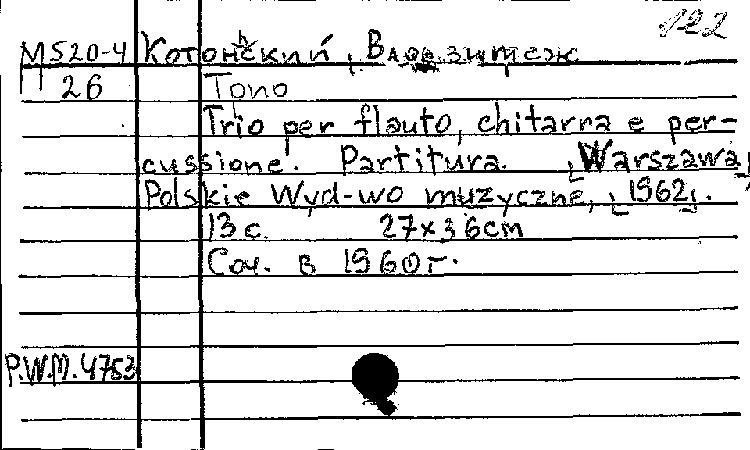 122
М520-4 Котоньский, Влодзимеж
26 Топо
Trio per flauto, chitarra e per-
cussione. Partitura. [Warszawa]
Polskie Wyd-wo muzyczne, [1962].
13 с. 27x36cm
Соч. в 1960г.
P.W.M. 4753